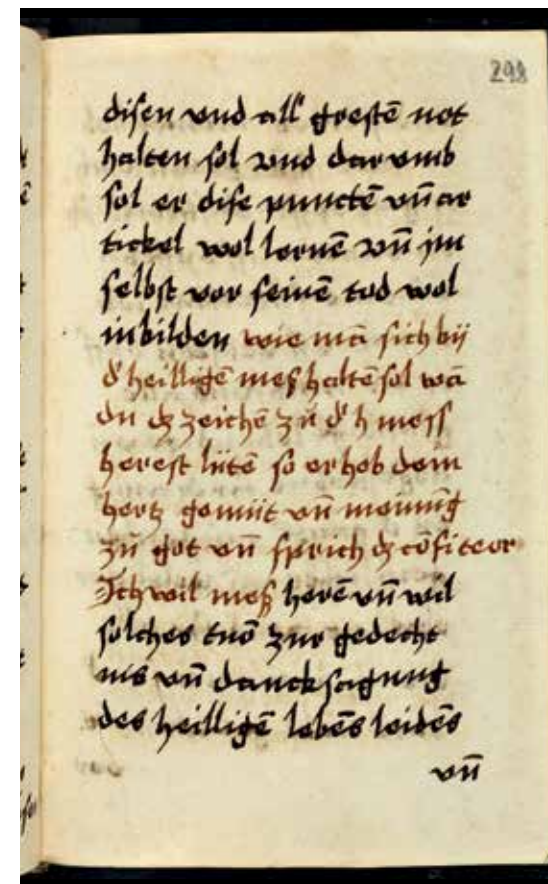 298
disen vnd all' groesten̄ not
halten sol vnd dar vmb
sol er dise punctē vn̄ ar
tickel wol lernē vn̄ jm
selbst vor seinē tod wol
inbilden wie mā sich bÿ
d' heilligē meß halten̄ sol wā
du dz zeichē zů d' h mess
herest lütē so erheb dein
hertz gemüt vn̄ meinūg
zů got vn̄ sprich dz cōfiteor
Ich wil meß herē vn̄ wil
solches tuō zur gedecht
nis vn̄ dancksagung
des heilligē lebēs leidēs
vn̄